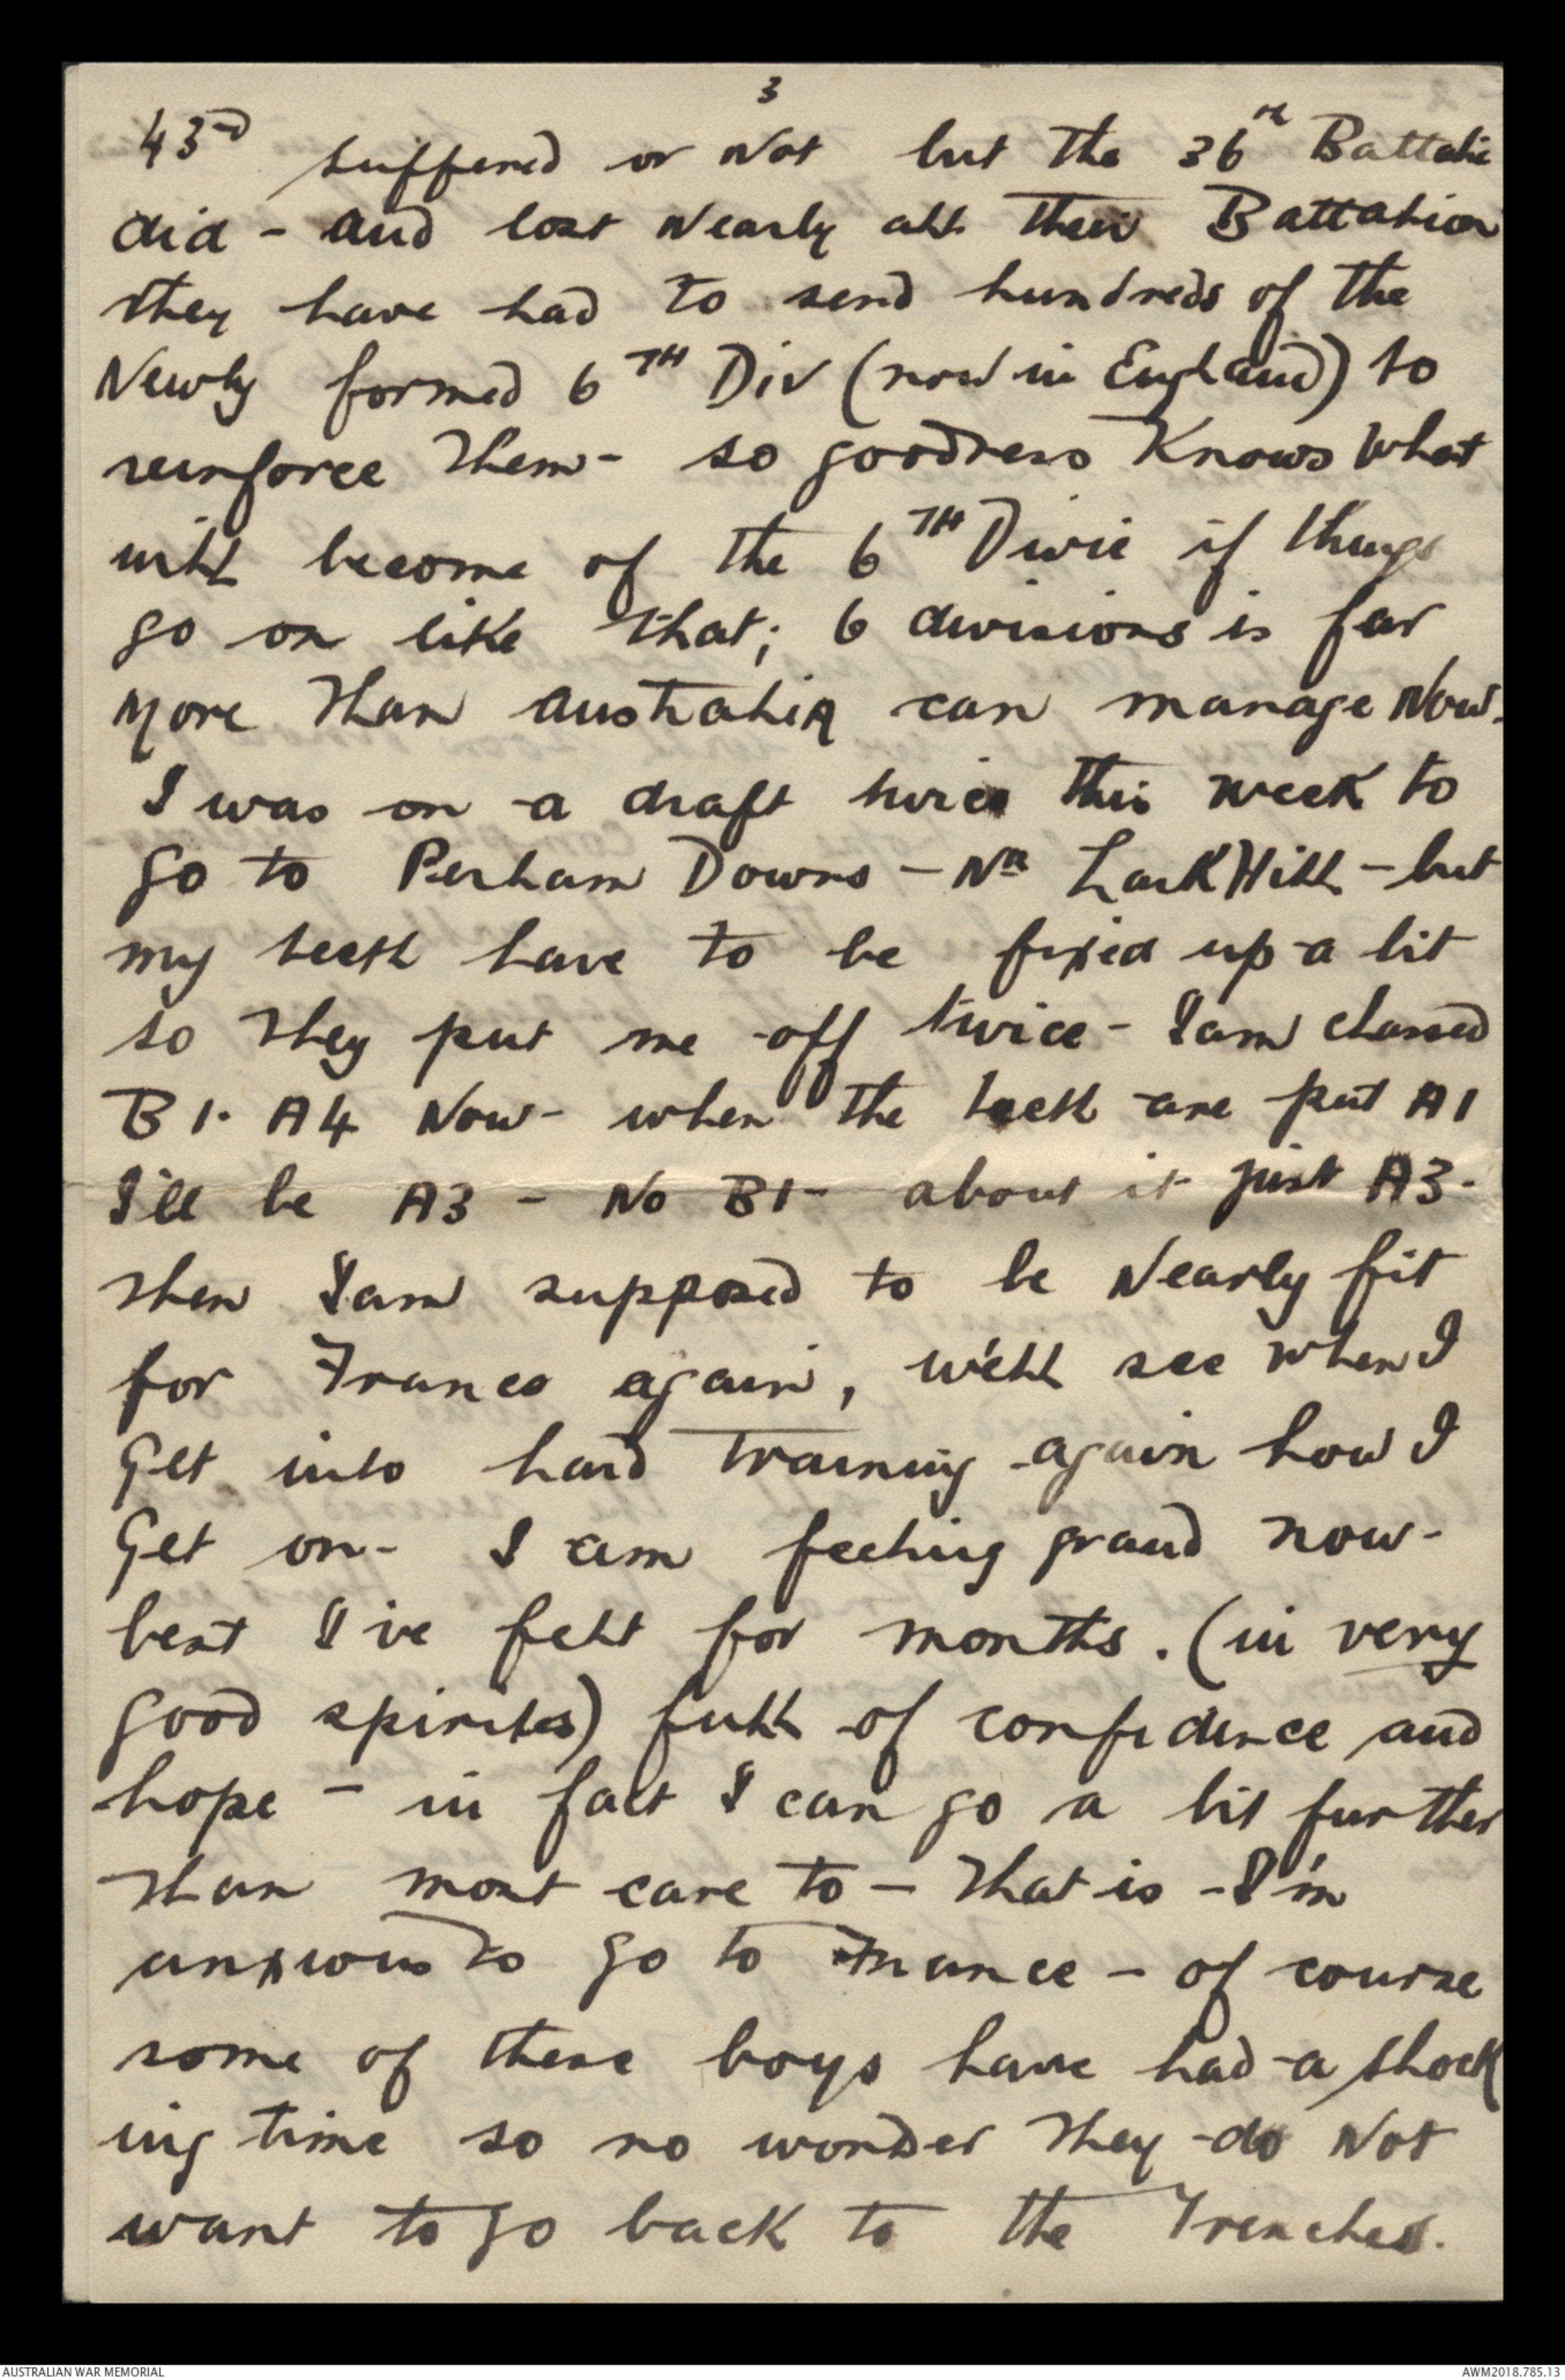 3
43rd suffered or Not but the 36th Battalio
did - and lost Nearly all their Battalion
they have had to send hundreds of the
Newly formed 6TH Div (now in England) to
reinforce them - so goodness Knows What
will become of the 6TH Divie if things
go on like that; 6 divisions is far
more than Australia can manage Now.
I was on a draft twice this week to
go to Perham Downs - Nr LarkHill - but
my teeth have to be fixed up a bit
so they put me off twice - I am classed
B1. A4 Now - when the teeth are put A1
I'll be A3 - No B1 - about it just A3.
then I am supposed to be Nearly fit
for France again, we'll see when I
Get into hard training again how I
Get on - I am feeling grand now -
best I've felt for months. (in very
good spirits) full of confidence and
hope - in fact I can go a bit further
than most care to - that is - I'm
anxious to go to France - of course
some of these boys have had a shock
ing time so no wonder they do Not
want to go back to the Trenches.
AUSTRALIAN WAR MEMORIAL
AWM2018.785.13